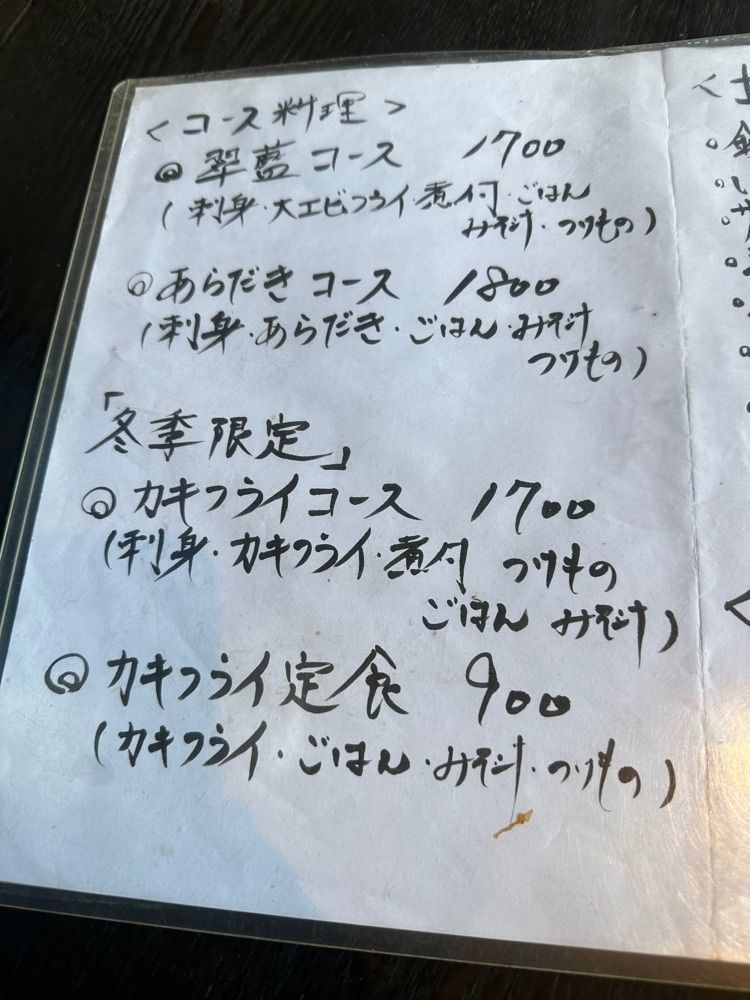 <コース料理>
◎翠藍コース 1700
(刺身・大エビフライ・煮付・ごはん
みそ汁・つけもの)
◎あらだきコース 1800
(刺身・あらだき・ごはん・みそ汁
つけもの)
「冬季限定」
◎カキフライコース 1700
(刺身・カキフライ・煮付 つけもの
ごはん みそ汁)
◎カキフライ定食 900
(カキフライ・ごはん・みそ汁・つけもの)